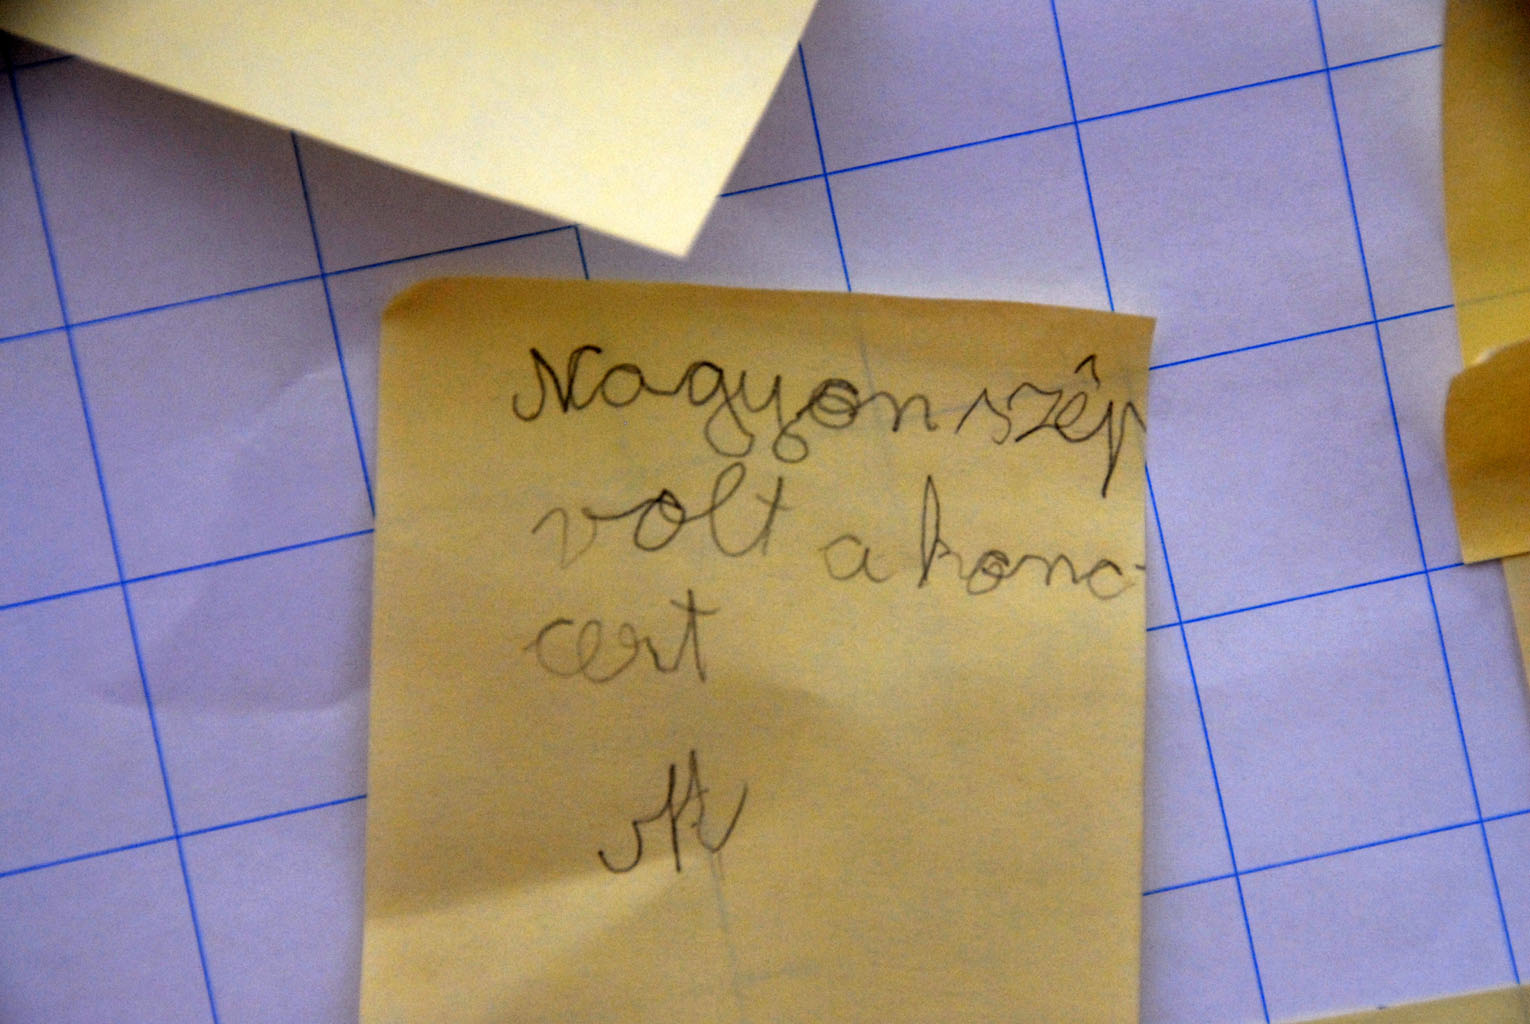 Nagyon szép
volt a konc-
cert